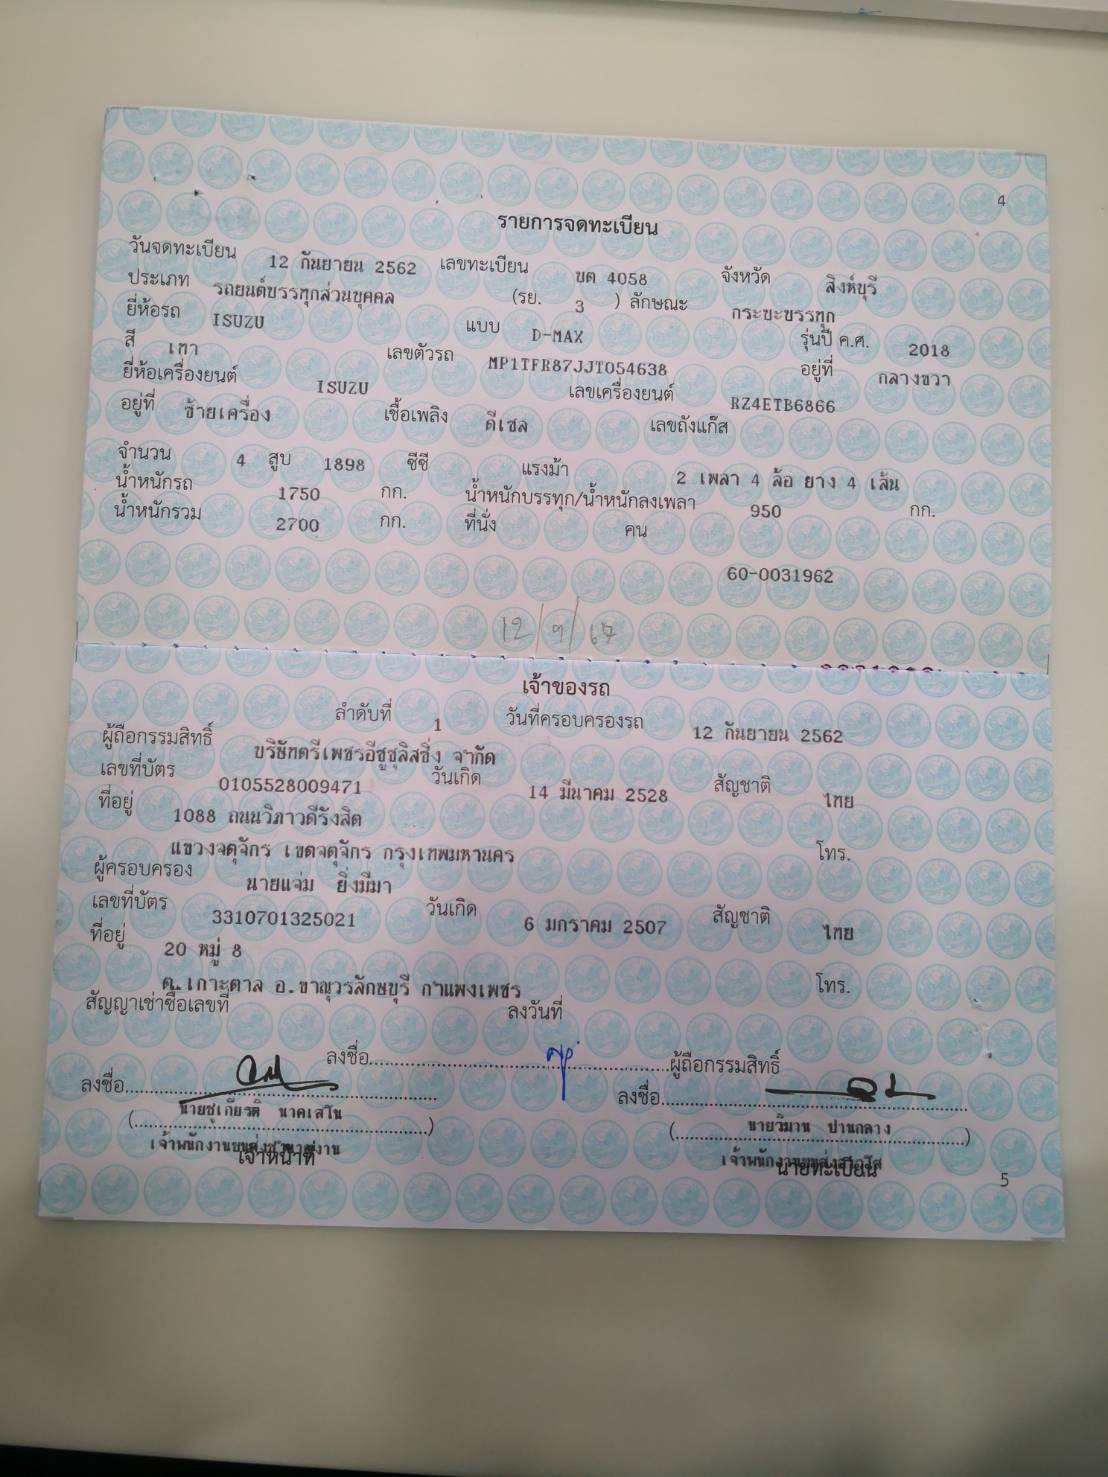 4
รายการจดทะเบียน
วันจดทะเบียน 12 กันยายน 2562 เลขทะเบียน ขต 4058 จังหวัด สิงห์บุรี
ประเภท รถยนต์บรรทุกส่วนบุคคล (รย. 3 ) ลักษณะ กระบะบรรทุก
ยี่ห้อรถ ISUZU แบบ D-MAX รุ่นปี ค.ศ. 2018
สี เทา เลขตัวรถ MP1TFR87JJT054638 อยู่ที่ กลางขวา
ยี่ห้อเครื่องยนต์ ISUZU เลขเครื่องยนต์ RZ4ETB6866
อยู่ที่ ซ้ายเครื่อง เชื้อเพลิง ดีเซล เลขถังแก๊ส
จำนวน 4 สูบ 1898 ซีซี แรงม้า 2 เพลา 4 ล้อ ยาง 4 เส้น
น้ำหนักรถ 1750 กก. น้ำหนักบรรทุก/น้ำหนักลงเพลา 950 กก.
น้ำหนักรวม 2700 กก. ที่นั่ง คน
60-0031962
12/9/67
เจ้าของรถ
ลำดับที่ 1 วันที่ครอบครองรถ 12 กันยายน 2562
ผู้ถือกรรมสิทธิ์ บริษัทตรีเพชรอีซูซุลิสซิ่ง จำกัด
เลขที่บัตร 0105528009471 วันเกิด 14 มีนาคม 2528 สัญชาติ ไทย
ที่อยู่ 1088 ถนนวิภาวดีรังสิต
แขวงจตุจักร เขตจตุจักร กรุงเทพมหานคร โทร.
ผู้ครอบครอง นายแจ่ม ยิ่งมีมา
เลขที่บัตร 3310701325021 วันเกิด 6 มกราคม 2507 สัญชาติ ไทย
ที่อยู่ 20 หมู่ 8
ต.เกาะตาล อ.ขาณุวรลักษบุรี กำแพงเพชร โทร.
สัญญาเช่าซื้อเลขที่ ลงวันที่
ลงชื่อ ผู้ถือกรรมสิทธิ์
ลงชื่อ ลงชื่อ
(นายชูเกียรติ นาคเสโน) (นายวิมาน ปานกลาง)
เจ้าพนักงานขนส่งชำนาญงาน เจ้าพนักงานขนส่งอาวุโส
เจ้าหน้าที่ นายทะเบียน
5